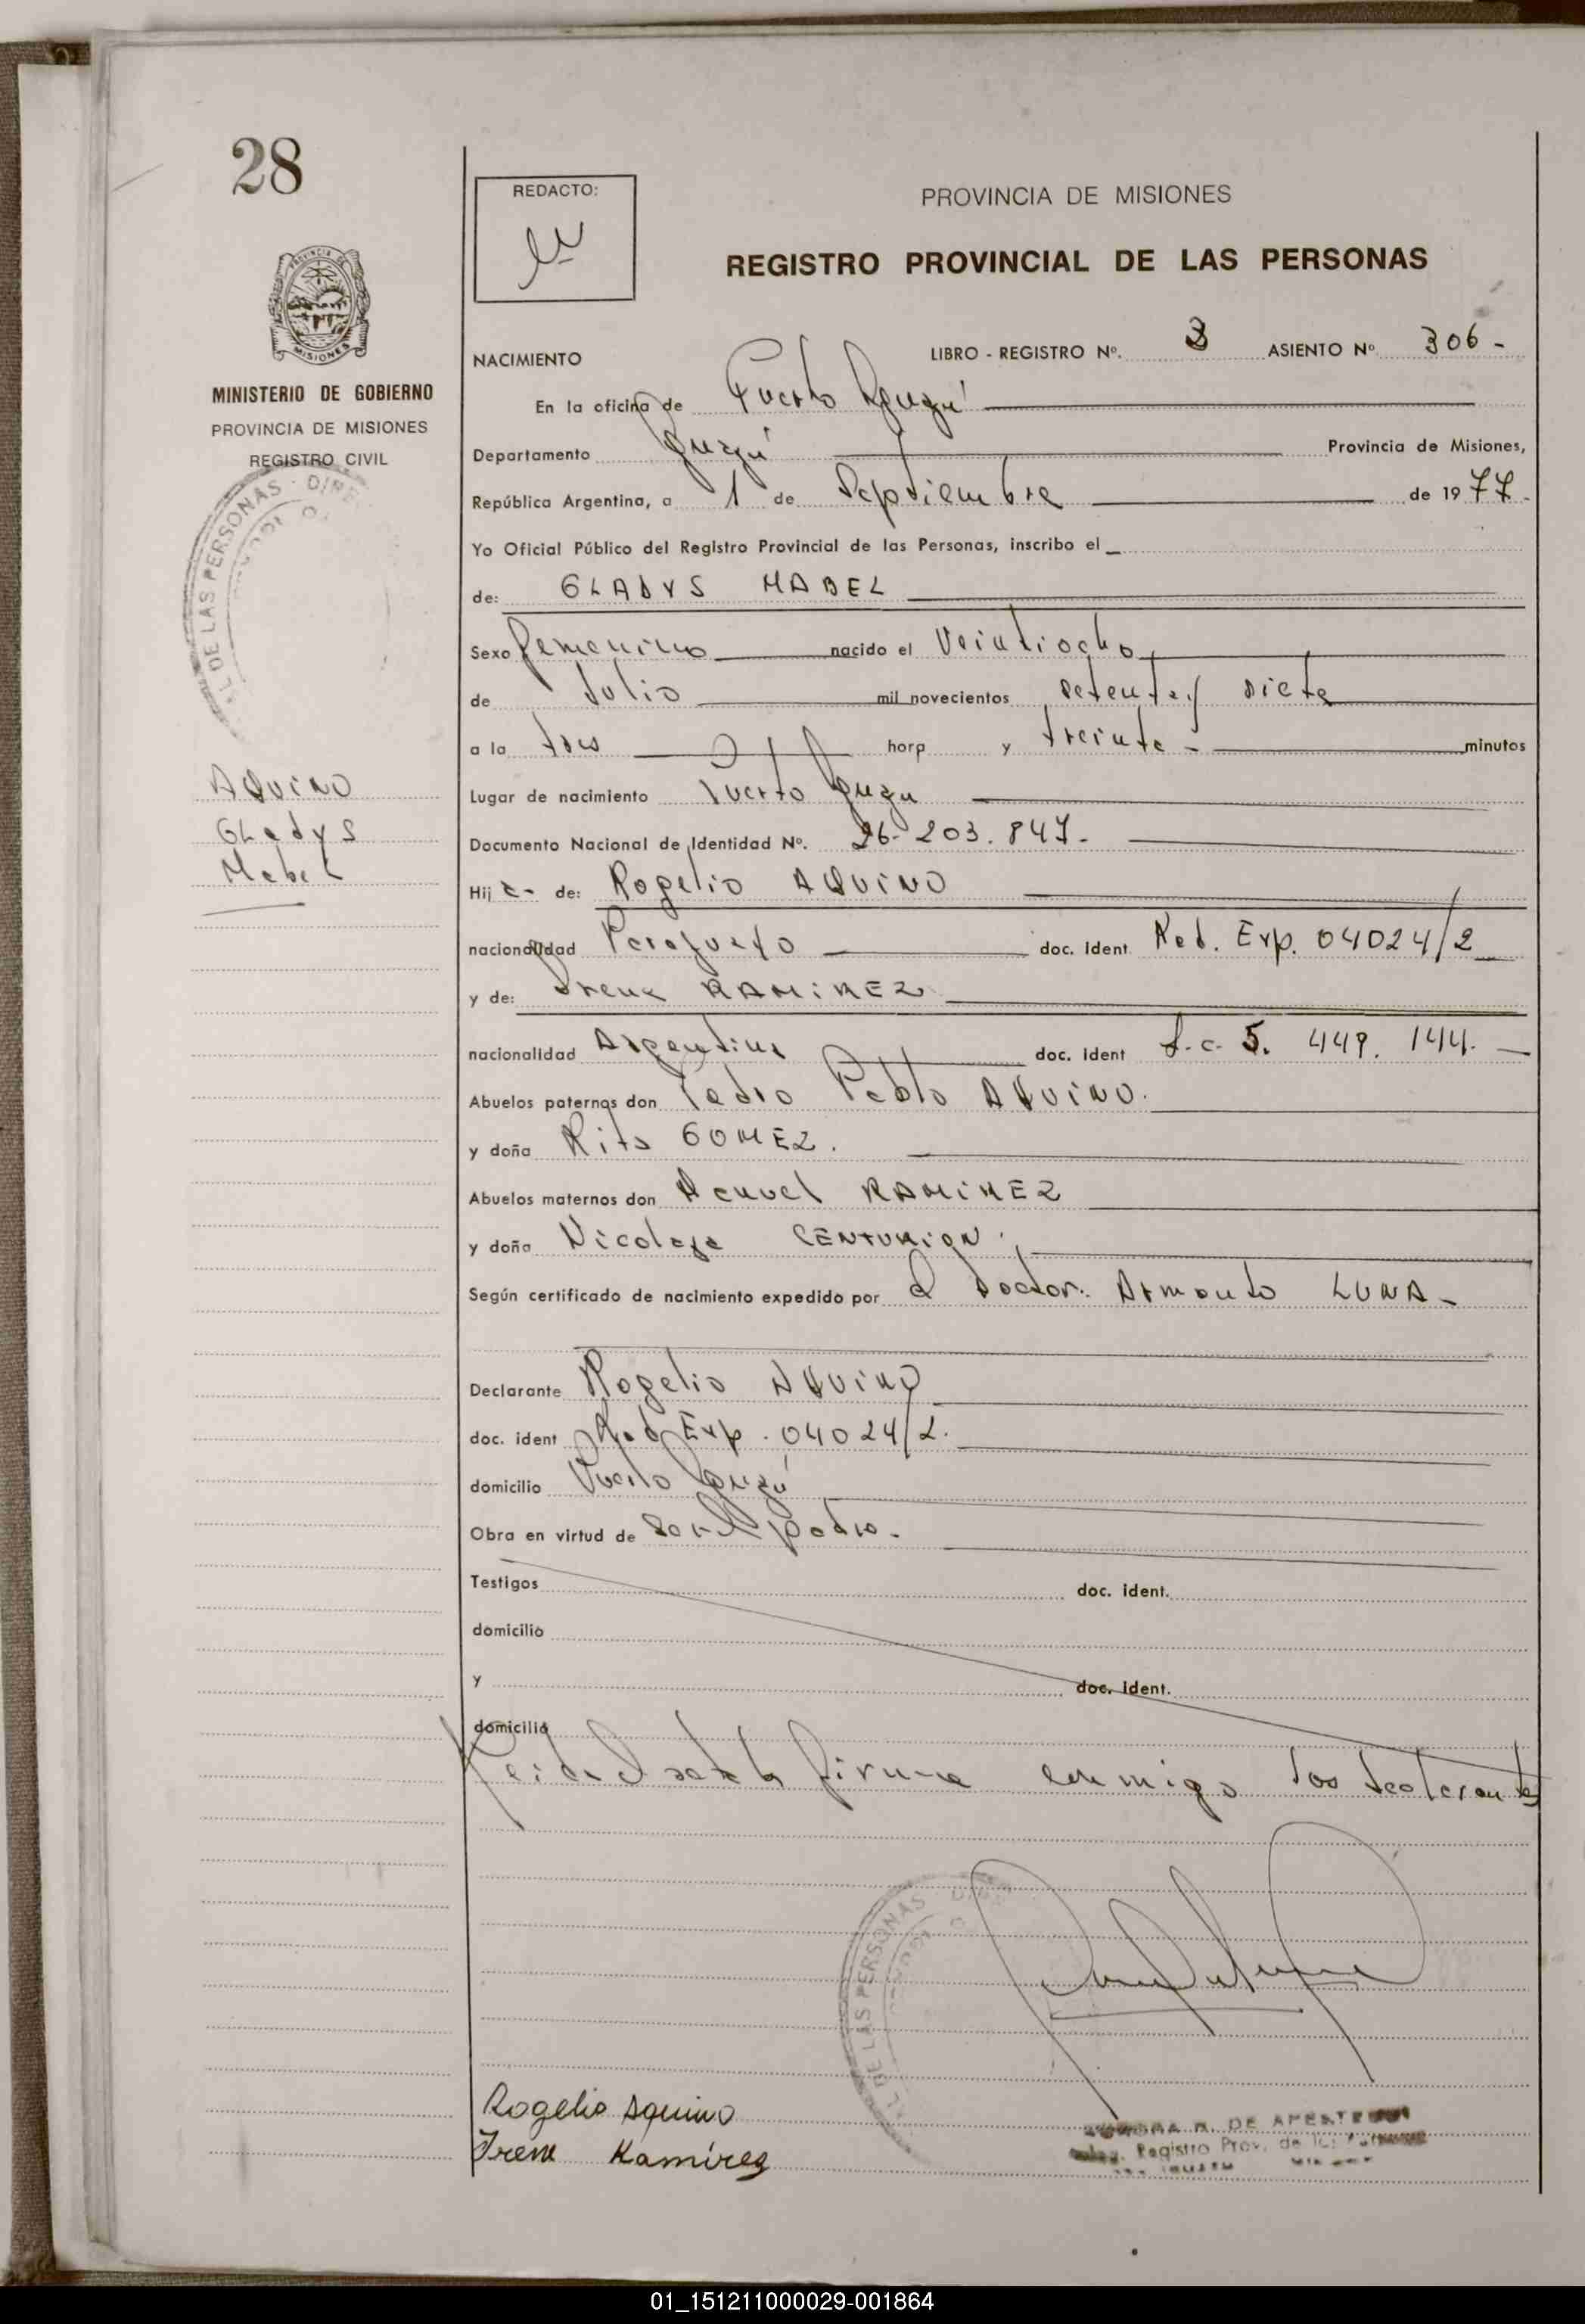 28
REDACTO:
PROVINCIA DE MISIONES
REGISTRO PROVINCIAL DE LAS PERSONAS
PROVINCIA DE
MISIONES
MINISTERIO DE GOBIERNO
PROVINCIA DE MISIONES
REGISTRO CIVIL
L DE LAS PERSONAS - DIRE
AQUINO
GLadys
MabeL
NACIMIENTO LIBRO - REGISTRO Nº. 3 ASIENTO Nº 306 -
En la oficina de Puerto Iguazú
Departamento Iguazú Provincia de Misiones,
República Argentina, a 1 de Septiembre de 1977-
Yo Oficial Público del Registro Provincial de las Personas, inscribo el
de: GLADYS MABEL
Sexo femenino nacido el Veintiocho
de Julio mil novecientos setenta y siete
a la tres hora y treinta - minutos
Lugar de nacimiento Puerto Iguazu
Documento Nacional de Identidad Nº. 26-203.847-
Hij a- de: Rogelio AQUINO
nacionalidad Paraguayo doc. ident. Rad. Exp. 04024/2
y de: Irene RAMIREZ
nacionalidad Argentina doc. ident L.c. 5. 449. 144.
Abuelos paternos don Pedro Pablo AQUINO.
y doña Rita GOMEZ.
Abuelos maternos don Manuel RAMIREZ
y doña Nicolasa CENTURION.
Según certificado de nacimiento expedido por el Doctor. Armando LUNA-
Declarante Rogelio AQUINO
doc. ident Rad Exp. 04024/2.
domicilio Puerto Iguazú
Obra en virtud de ser el padre.
Testigos doc. ident.
domicilio
y doc. ident.
domicilio
Leida el acta firman conmigo los declarantes
DE LAS PERSONAS
Rogelio Aquino
Irene Ramírez
DE
Registro Prov. de las